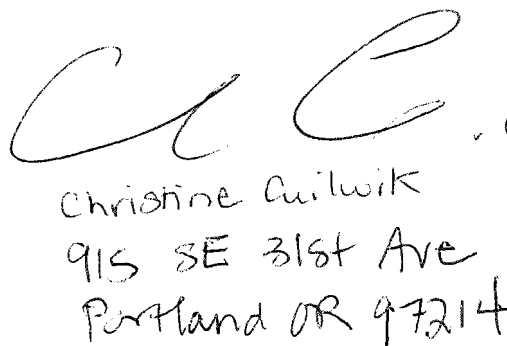 Christine Cuilwik
915 SE 31st Ave
Portland OR 97214